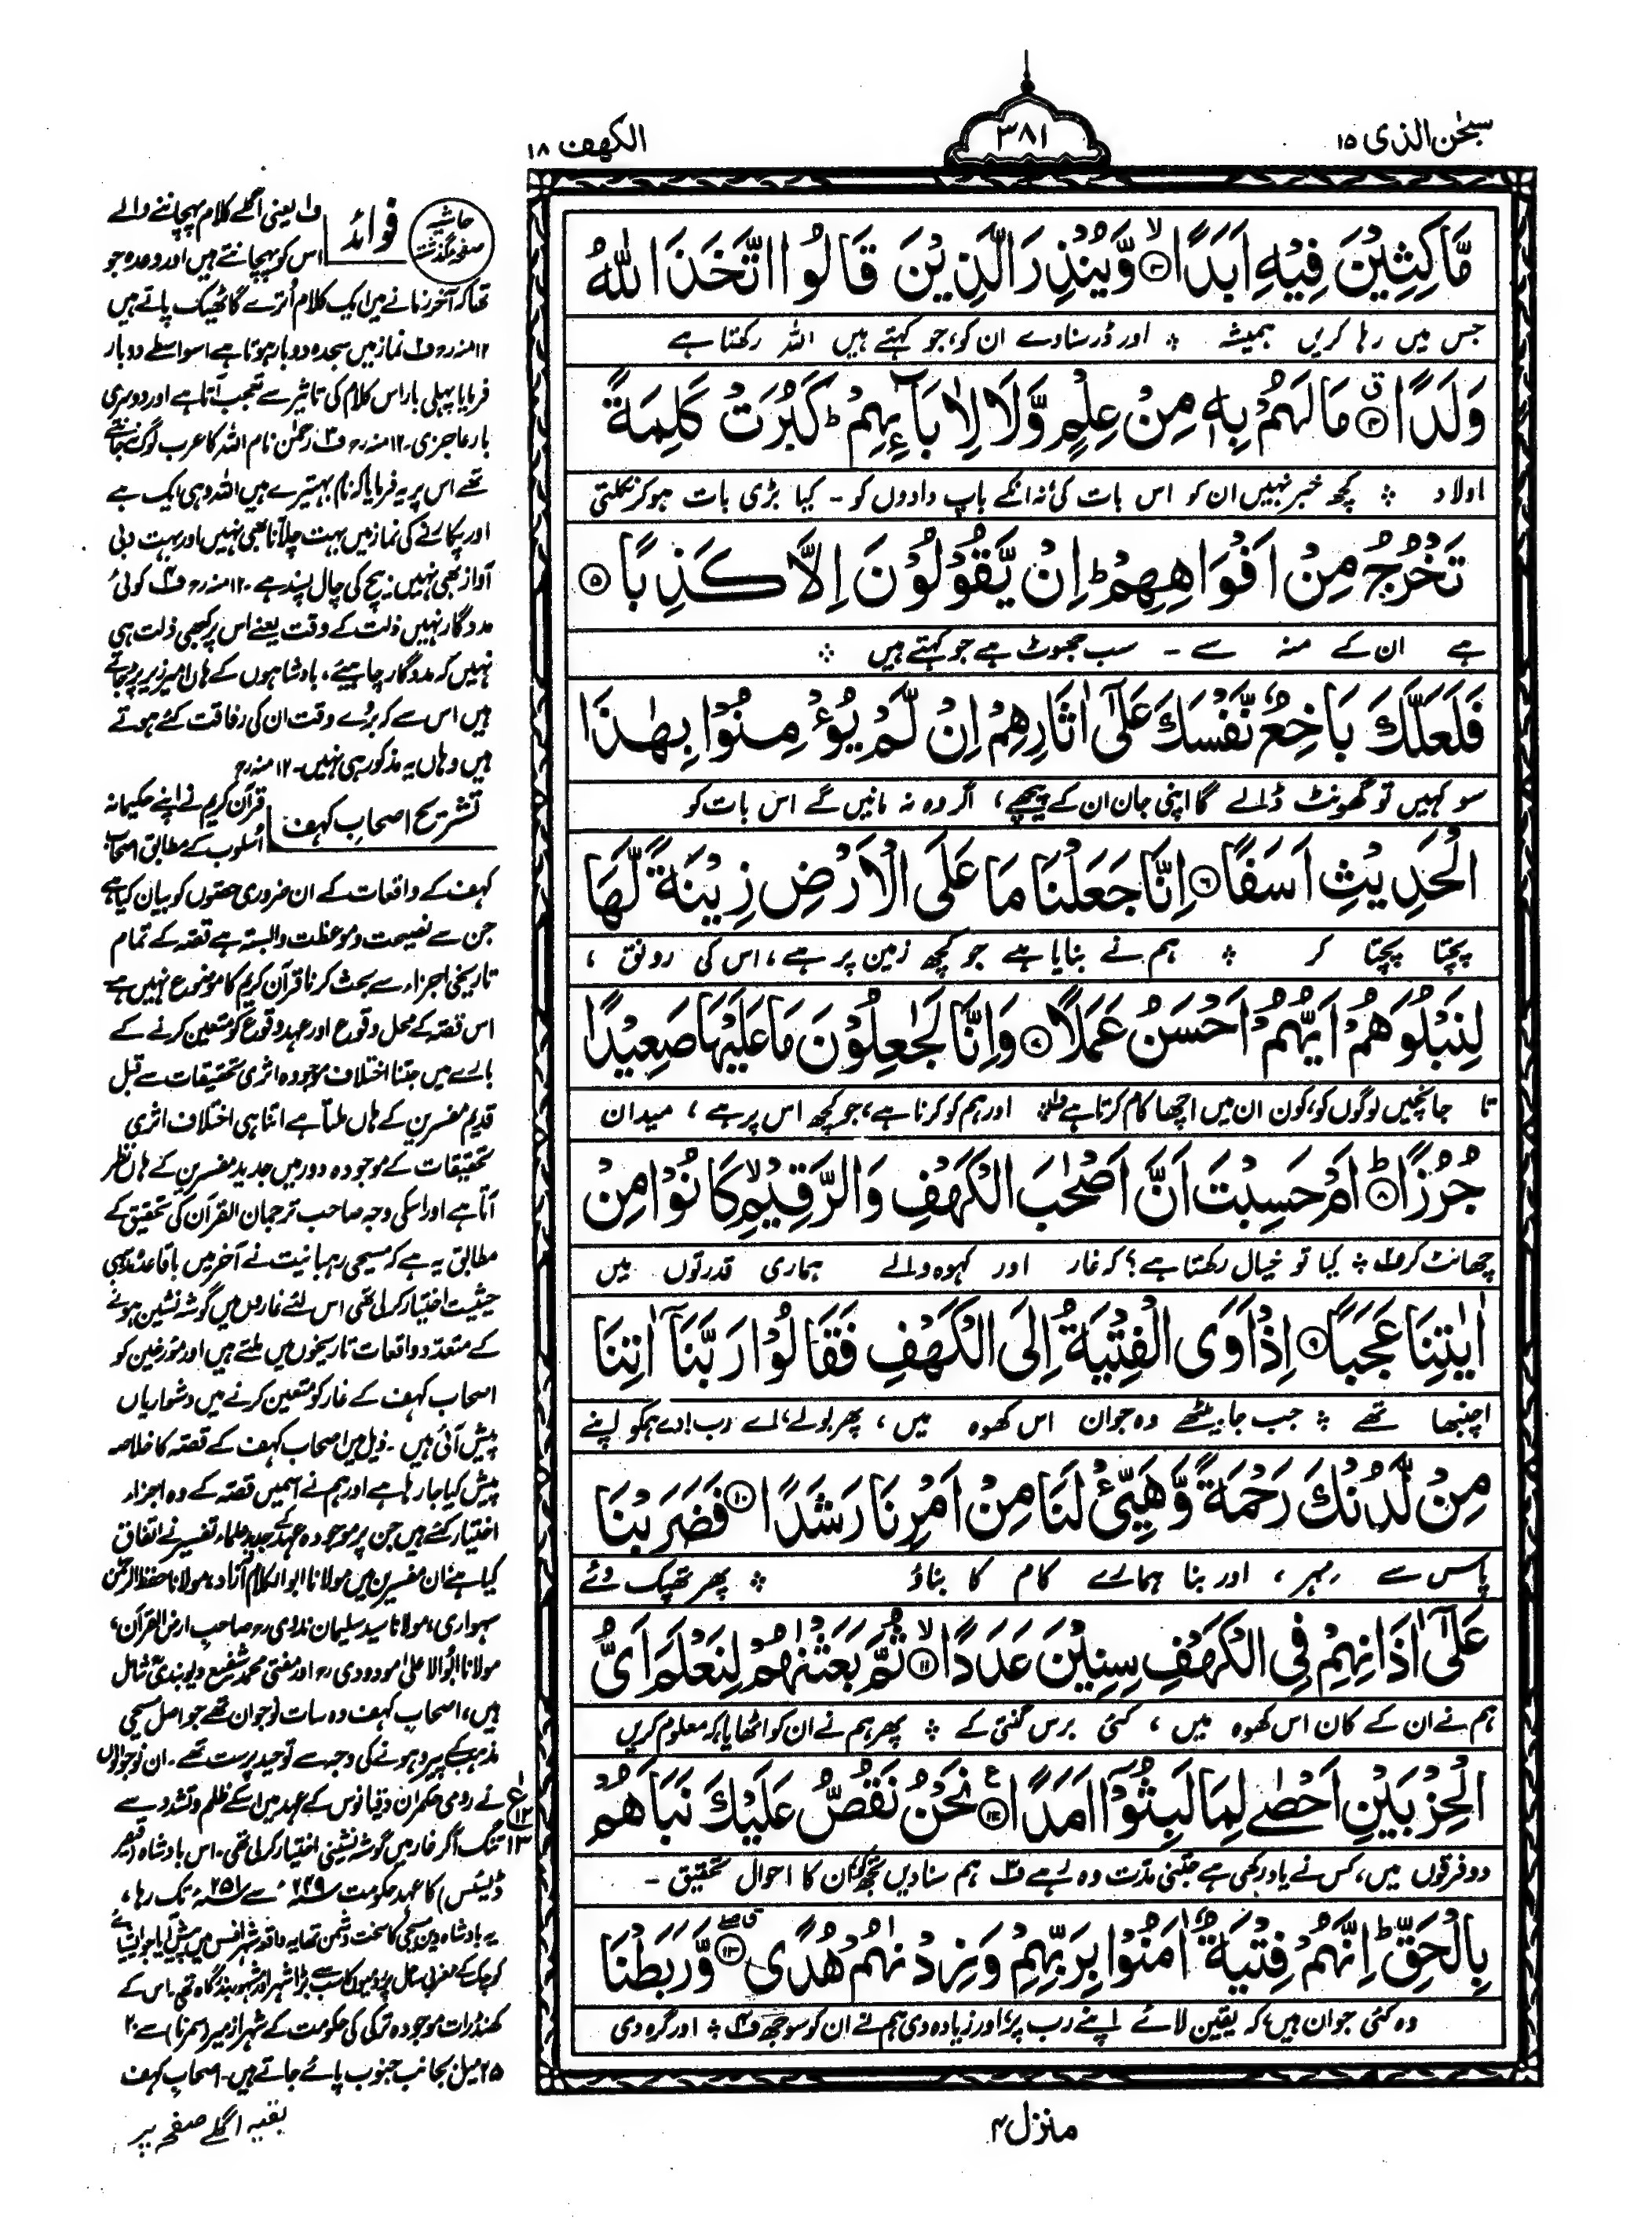 سبحٰن الذی ۱۵
۳۸۱
الکهف ۱۸
مَّاكِثِيْنَ فِيْهِ اَبَدًا ۙ﴿۳﴾ وَّيُنْذِرَ الَّذِيْنَ قَالُوا اتَّخَذَ اللّٰهُ
جس میں رہا کریں ہمیشہ ؞ اور ڈر سنا دے ان کو، جو کہتے ہیں اللہ رکھتا ہے
وَلَدًا ۗ﴿۴﴾ مَا لَهُمْ بِهٖ مِنْ عِلْمٍ وَّلَا لِاٰبَآئِهِمْ ؕ كَبُرَتْ كَلِمَةً
اولاد ؞ کچھ خبر نہیں ان کو اس بات کی، نہ انکے باپ دادوں کو - کیا بڑی بات ہو کر نکلتی
تَخْرُجُ مِنْ اَفْوَاهِهِمْ ؕ اِنْ يَّقُوْلُوْنَ اِلَّا كَذِبًا ﴿۵﴾
ہے ان کے منہ سے - سب جھوٹ ہے جو کہتے ہیں ؞
فَلَعَلَّكَ بَاخِعٌ نَّفْسَكَ عَلٰٓى اٰثَارِهِمْ اِنْ لَّمْ يُؤْمِنُوْا بِهٰذَا
سو کہیں تو گھونٹ ڈالے گا اپنی جان ان کے پیچھے، اگر وہ نہ مانیں گے اس بات کو
الْحَدِيْثِ اَسَفًا ﴿۶﴾ اِنَّا جَعَلْنَا مَا عَلَى الْاَرْضِ زِيْنَةً لَّهَا
پچتا پچتا کر ؞ ہم نے بنایا ہے جو کچھ زمین پر ہے، اس کی رونق،
لِنَبْلُوَهُمْ اَيُّهُمْ اَحْسَنُ عَمَلًا ﴿۷﴾ وَاِنَّا لَجٰعِلُوْنَ مَا عَلَيْهَا صَعِيْدًا
تا جانچیں لوگوں کو، کون ان میں اچھا کام کرتا ہے ؞ اور ہم کو کرنا ہے، جو کچھ اس پر ہے، میدان
جُرُزًا ؕ﴿۸﴾ اَمْ حَسِبْتَ اَنَّ اَصْحٰبَ الْكَهْفِ وَالرَّقِيْمِ ۙ كَانُوْا مِنْ
چھانٹ کر ؞ کیا تو خیال رکھتا ہے؟ کہ غار اور کہوہ والے ہماری قدرتوں میں
اٰيٰتِنَا عَجَبًا ﴿۹﴾ اِذْ اَوَى الْفِتْيَةُ اِلَى الْكَهْفِ فَقَالُوْا رَبَّنَآ اٰتِنَا
اچنبھا تھے ؞ جب جا بیٹھے وہ جوان اس کھوہ میں، پھر بولے، اے رب! دے ہمکو اپنے
مِنْ لَّدُنْكَ رَحْمَةً وَّهَيِّئْ لَنَا مِنْ اَمْرِنَا رَشَدًا ﴿۱۰﴾ فَضَرَبْنَا
پاس سے مہر، اور بنا ہمارے کام کا بناؤ ؞ پھر تھپک دئے
عَلٰٓى اٰذَانِهِمْ فِى الْكَهْفِ سِنِيْنَ عَدَدًا ۙ﴿۱۱﴾ ثُمَّ بَعَثْنٰهُمْ لِنَعْلَمَ اَىُّ
ہم نے ان کے کان اس کھوہ میں، کئی برس گنتی کے ؞ پھر ہم نے ان کو اٹھایا، کہ معلوم کریں
الْحِزْبَيْنِ اَحْصٰى لِمَا لَبِثُوْٓا اَمَدًا ﴿۱۲﴾ۧ نَحْنُ نَقُصُّ عَلَيْكَ نَبَاَهُمْ
دو فرقوں میں، کس نے یاد رکھی ہے جتنی مدت وہ رہے ف۳ ہم سنا دیں تجھ کو ان کا احوال تحقیق -
بِالْحَقِّ ؕ اِنَّهُمْ فِتْيَةٌ اٰمَنُوْا بِرَبِّهِمْ وَزِدْنٰهُمْ هُدًى ﴿۱۳﴾ وَّرَبَطْنَا
وہ کئی جوان ہیں، کہ یقین لائے اپنے رب پر، اور زیادہ دی ہم نے ان کو سوجھ ف۴ ؞ اور گرہ دی
منزل ۴
حاشیہ صفحہ گذشتہ
فوائد
ف۱ یعنی اگلے کلام پہچاننے والے
اس کو پہچانتے ہیں اور وعدہ جو
تھا کہ آخر زمانے میں ایک کلام اُترے گا ٹھیک پاتے ہیں
۱۲ منہ رح ف۲ نماز میں سجدہ دو بار ہوتا ہے اسواسطے دو بار
فرمایا پہلی بار اس کلام کی تاثیر سے تعجب آتا ہے اور دوسری
بار عاجزی ۔ ۱۲ منہ رح ف۳ رحمٰن نام اللہ کا عرب لوگ نہ جانتے
تھے اس پر یہ فرمایا کہ نام بہتیرے ہیں اللہ وہی ایک ہے
اور پکارنے کی نماز میں بہت چلانا بھی نہیں اور بہت دبی
آواز بھی نہیں، بیچ کی چال پسند ہے ۔ ۱۲ منہ رح ف۴ کوئی
مددگار نہیں ذلت کے وقت یعنے اس پر کبھی ذلت ہی
نہیں کہ مددگار چاہیئے، بادشاہوں کے ہاں امیر زیر پڑ جاتے
ہیں اس سے کہ بُرے وقت ان کی رفاقت کئے ہوتے
ہیں وہاں یہ مذکور ہی نہیں ۔ ۱۲ منہ رح
تشریح اصحابِ کہف
قرآن کریم نے اپنے حکیمانہ
اُسلوب کے مطابق اصحاب
کہف کے واقعات کے ان ضروری حصوں کو بیان کیا ہے
جن سے نصیحت و موعظت وابستہ ہے قصّہ کے تمام
تاریخی اجزاء سے بحث کرنا قرآن کریم کا موضوع نہیں ہے
اس قصّہ کے محل وقوع اور عہد وقوع کو متعین کرنے کے
بارے میں جتنا اختلاف موجودہ اثری تحقیقات سے قبل
قدیم مفسرین کے ہاں ملتا ہے اتنا ہی اختلاف اثری
تحقیقات کے موجودہ دور میں جدید مفسرین کے ہاں نظر
آتا ہے اور اسکی وجہ صاحب ترجمان القرآن کی تحقیق کے
مطابق یہ ہے کہ مسیحی رہبانیت نے آخر میں باقاعدہ مذہبی
حیثیت اختیار کر لی تھی اس لئے غاروں میں گوشہ نشین ہونے
کے متعدد واقعات تاریخوں میں ملتے ہیں اور مؤرخین کو
اصحاب کہف کے غار کو متعین کرنے میں دشواریاں
پیش آئی ہیں ۔ ذیل میں اصحاب کہف کے قصّہ کا خلاصہ
پیش کیا جا رہا ہے اور ہم نے اسمیں قصّہ کے وہ اجزاء
اختیار کئے ہیں جن پر موجودہ عہد کے جدید علماء تفسیر نے اتفاق
کیا ہے ان مفسرین میں مولانا ابوالکلام آزاد، مولانا حفظ الرحمٰن
سہواری، مولانا سید سلیمان ندوی رح صاحب ارض القرآن،
مولانا ابوالاعلیٰ مودودی رح اور مفتی محمد شفیع دیوبندی شامل
ہیں، اصحاب کہف وہ سات نوجوان تھے جو اصل مسیحی
مذہب کے پیرو ہونے کی وجہ سے توحید پرست تھے ۔ ان نوجوانوں
نے رومی حکمران دقیانوس کے عہد میں اسکے ظلم و تشدد سے
تنگ آکر غار میں گوشہ نشینی اختیار کر لی تھی ۔ اس بادشاہ (قیصر
ڈیسیس) کا عہد حکومت ۲۴۹ء سے ۲۵۱ء تک رہا،
یہ بادشاہ دین مسیحی کا سخت دشمن تھا یہ واقعہ شہر افسس میں پیش آیا جو ایشیائے
کوچک کے مغربی ساحل پر رومیوں کا سب سے بڑا شہر اور مشہور بندرگاہ تھی ۔ اس کے
کھنڈرات موجودہ ترکی کی حکومت کے شہر ازمیر (سمرنا) سے ۲۰
۲۵ میل بجانب جنوب پائے جاتے ہیں ۔ اصحاب کہف
بقیہ اگلے صفحہ پر
ع
۱۲
۱۳